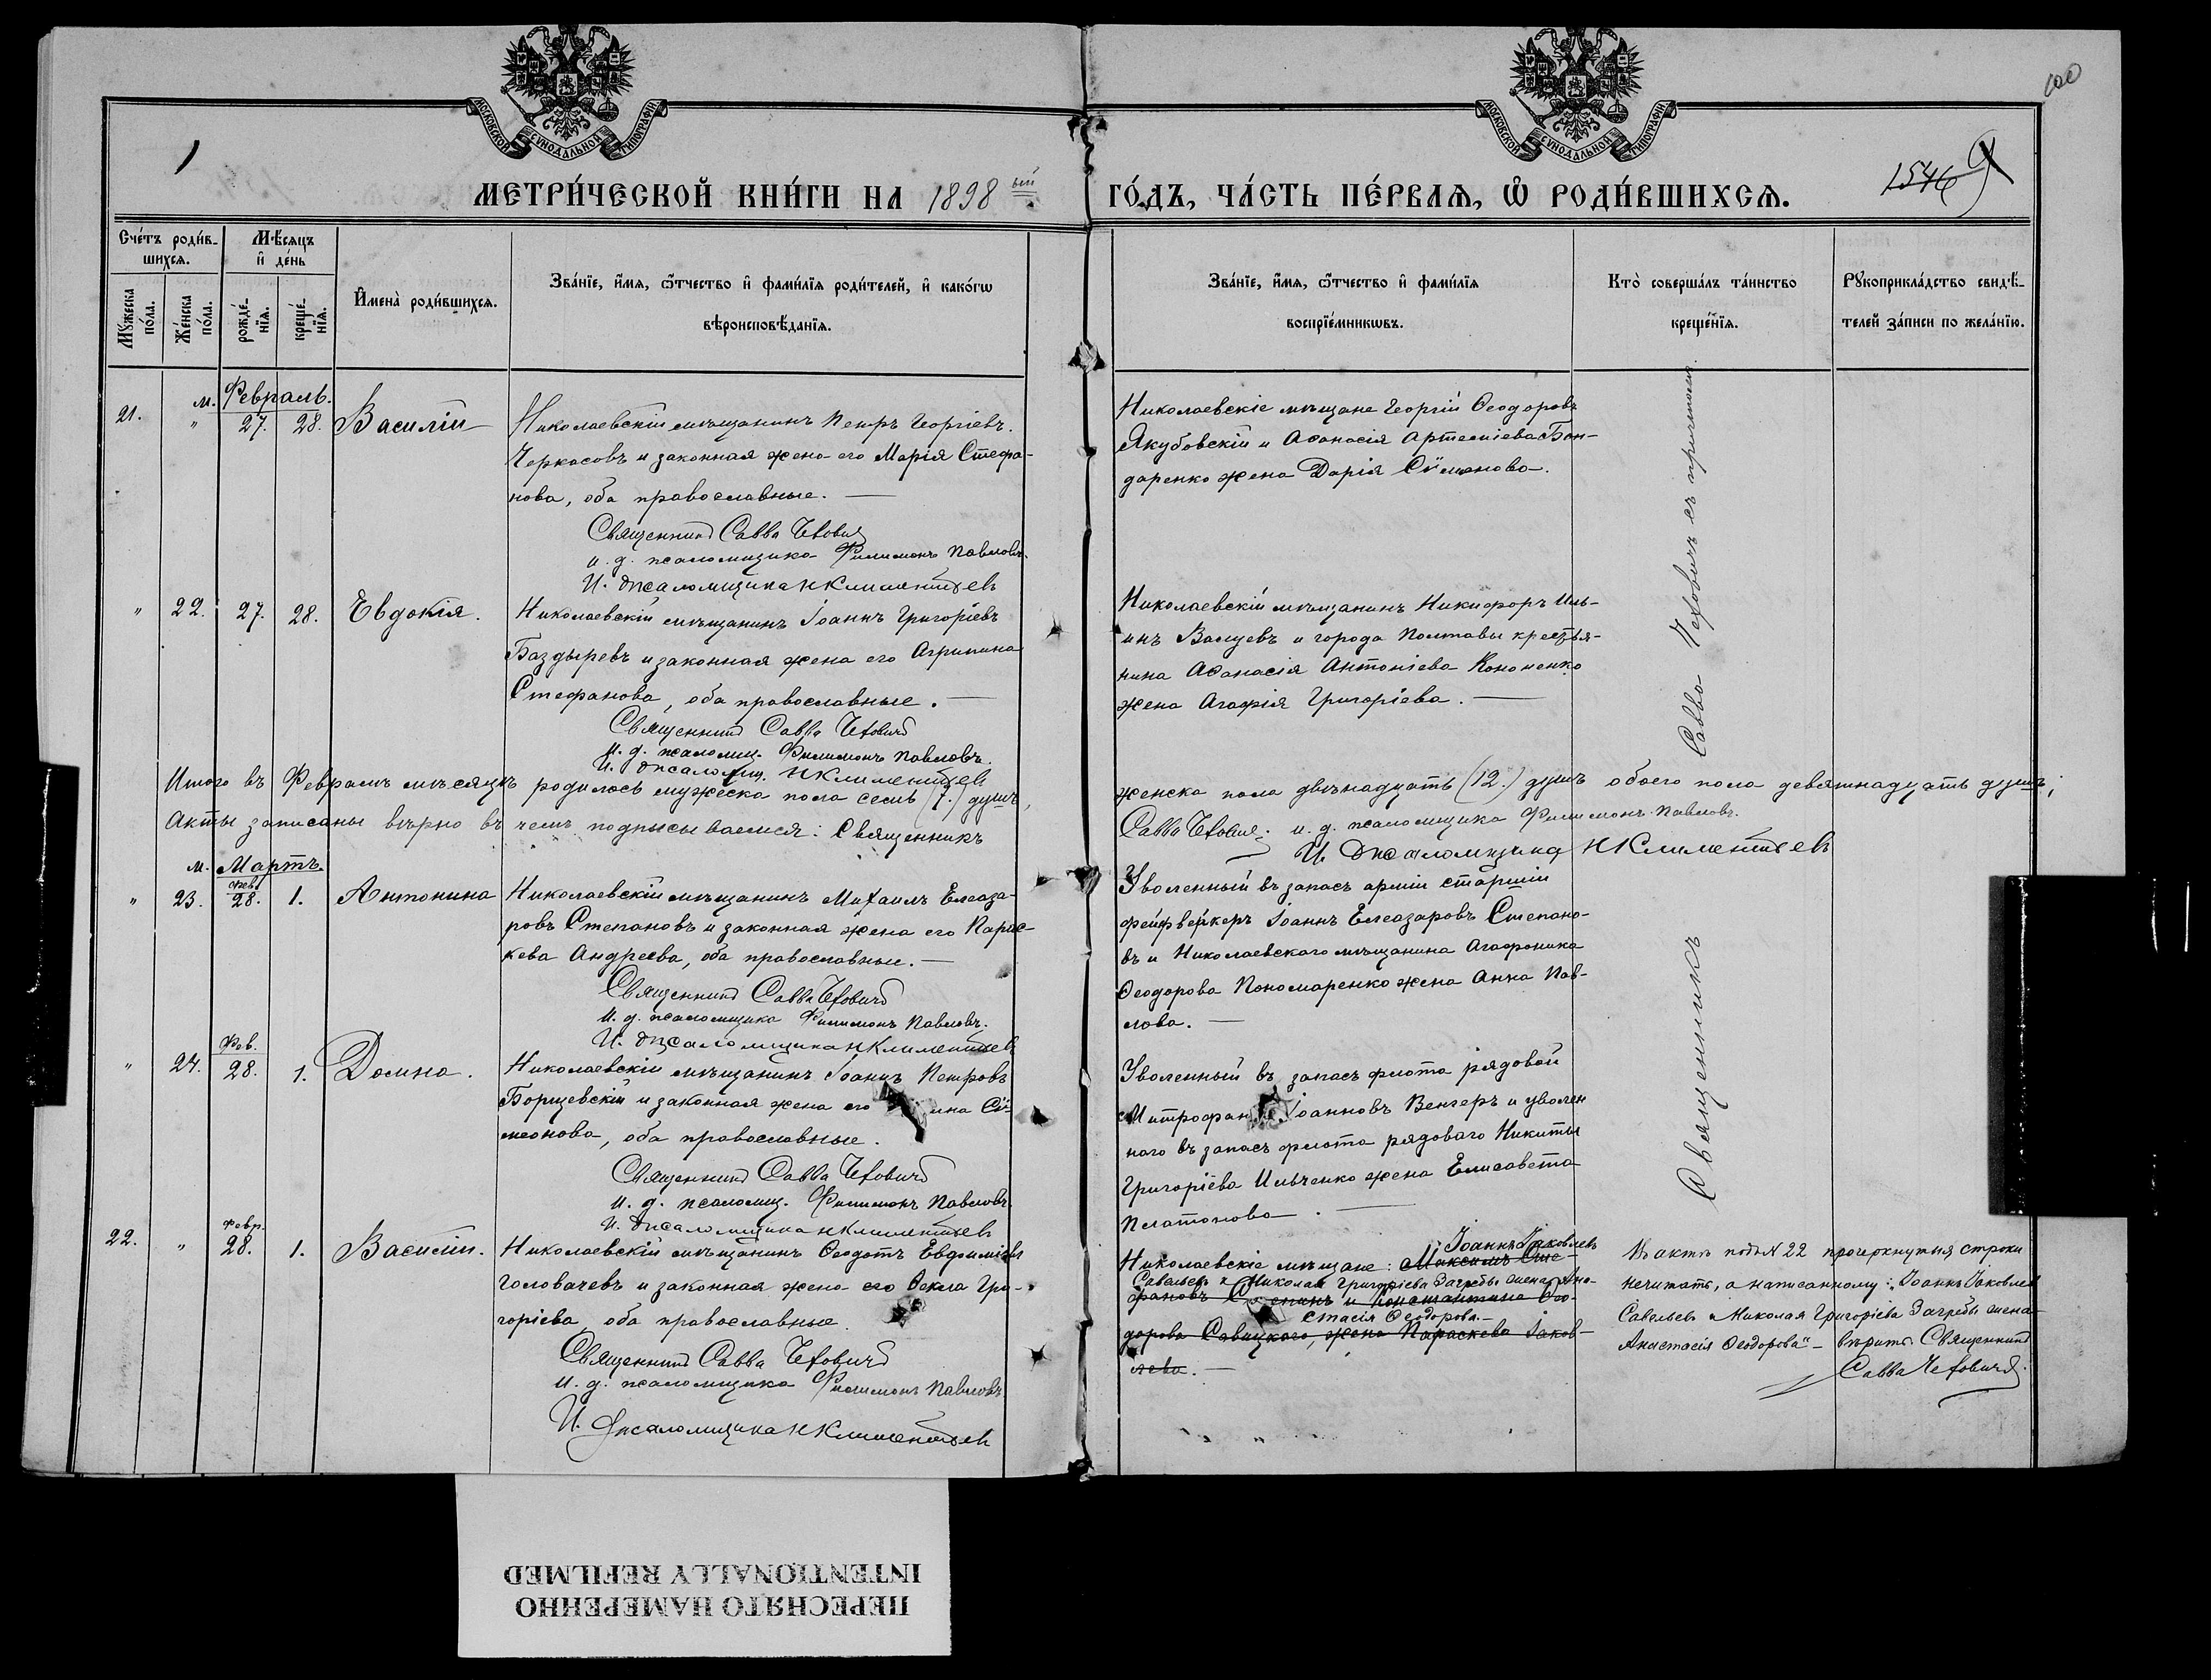 МОСКОВСКОЙ СѴНОДАЛЬНОЙ ТИПОГРАФІИ
МОСКОВСКОЙ СѴНОДАЛЬНОЙ ТИПОГРАФІИ
100
1546
МЕТРИ́ЧЕСКОЙ КНИ́ГИ НА 1898ый
ГО́ДЪ, ЧА́СТЬ ПЕ́РВАѦ, Ѽ РОДИ́ВШИХСѦ.
Сче́тъ роди́в-
шихсѧ.
Мѣсѧцъ
и҆ де́нь
Мꙋжеска
по́ла.
Же́нска
по́ла.
рожде́-
нїѧ.
креще́-
нїѧ.
И҆мена̀ роди́вшихсѧ.
Зва́нїе, и҆́мѧ, ѻ҆́тчество и҆ фами́лїѧ роди́телей, и҆ како́гѡ
вѣроисповѣ́данїѧ.
Зва́нїе, и҆́мѧ, ѻ҆́тчество и҆ фами́лїѧ
воспрїе́мникѡвъ.
Кто̀ соверша́лъ та́инство
креще́нїѧ.
Рꙋкоприкла́дство свидѣ́-
телей за́писи по жела́нїю.
м. Февраль.
21. " 27. 28. Василій
Николаевскій мѣщанинъ Петръ Георгіевъ.
Черкасовъ и законная жена его Марія Стефа-
нова, оба православные. —
Священникъ Савва Чеховичъ
и. д. псаломщика Филимонъ Павловъ.
И. д. псаломщика Н Климентьевъ
Николаевскіе мѣщане Георгій Ѳеодоровъ
Якубовскій и Аѳанасія Артеміева Бон-
даренко жена Дарія Сѵмеонова.
" 22. 27. 28. Евдокія.
Николаевскій мѣщанинъ Іоаннъ Григоріевъ
Баздыревъ и законная жена его Агрипина
Стефанова, оба православные. —
Священникъ Савва Чеховичъ
И. д. псаломщ. Филимонъ Павловъ.
И. д. псаломщ. Н Климентьевъ
Николаевскій мѣщанинъ Никифоръ Иль-
инъ Валуевъ и города Полтавы крестья-
нина Аѳанасія Антоніева Кононенко
жена Агафія Григоріева. —
Итого въ Февралѣ мѣсяцѣ родилось мужеска пола семь (7.) душъ,
женска пола двѣнадцать (12.) душъ обоего пола девятнадцать душъ;
Акты записаны вѣрно въ чемъ подписываемся: Священникъ
Савва Чеховичъ; и. д. псаломщика Филимонъ Павловъ.
И. д. псаломщика Н Климентьевъ
м. Мартъ.
" 23. Февр. 28. 1. Антонина
Николаевскій мѣщанинъ Михаилъ Елеаза-
ровъ Степановъ и законная жена его Парас-
кева Андреева, оба православные. —
Священникъ Савва Чеховичъ
И. д. псаломщика Филимонъ Павловъ.
И. д. псаломщика Н Климентьевъ
Уволенный въ запасъ арміи старшій
фейфвейкеръ Іоаннъ Елеазаровъ Степано-
въ и Николаевскаго мѣщанина Агафоника
Ѳеодорова Пономаренко жена Анна Пав-
лова. —
" 24. Фев. 28. 1. Домна.
Николаевскій мѣщанинъ Іоаннъ Петровъ
Борщевскій и законная жена его ина Сѵ-
меонова, оба православные.
Священникъ Савва Чеховичъ
и. д. псаломщ. Филимонъ Павловъ.
И. д. псаломщика Н Климентьевъ
Уволенный въ запасъ флота рядовой
Митрофанъ Іоанновъ Венгеръ и уволен
наго въ запасъ флота рядоваго Никиты
Григоріева Ильченко жена Елисавета
Платонова. —
22. " Февр. 28. 1. Василій.
Николаевскій мѣщанинъ Ѳеодотъ Евдокимовъ
Головачевъ и законная жена его Ѳекла Гри-
горіева, оба православные.
Священникъ Савва Чеховичъ
И. д. псаломщика Филимонъ Павловъ
И. д. псаломщика Н Климентьевъ
Іоаннъ Іаковлевъ
Николаевскіе мѣщане: Максимъ
Савельевъ и Николая Григоріева Загребы жена Ана-
и Константина Ѳео-
стасія Ѳеодорова. —
дорова Савицкаго, жена Параскева Іаков-
лева. —
Священникъ Савва Чеховичъ съ причтомъ
Въ актѣ подъ N 22 прочеркнутыя строки
нечитать, а написанному: "Іоаннъ Іаковлев
Савельевъ Николая Григоріева Загребы жена
Анастасія Ѳеодорова" – вѣрить. Священникъ
Савва Чеховичъ.
ПЕРЕСНЯТО НАМЕРЕННО
INTENTIONALLY REFILMED